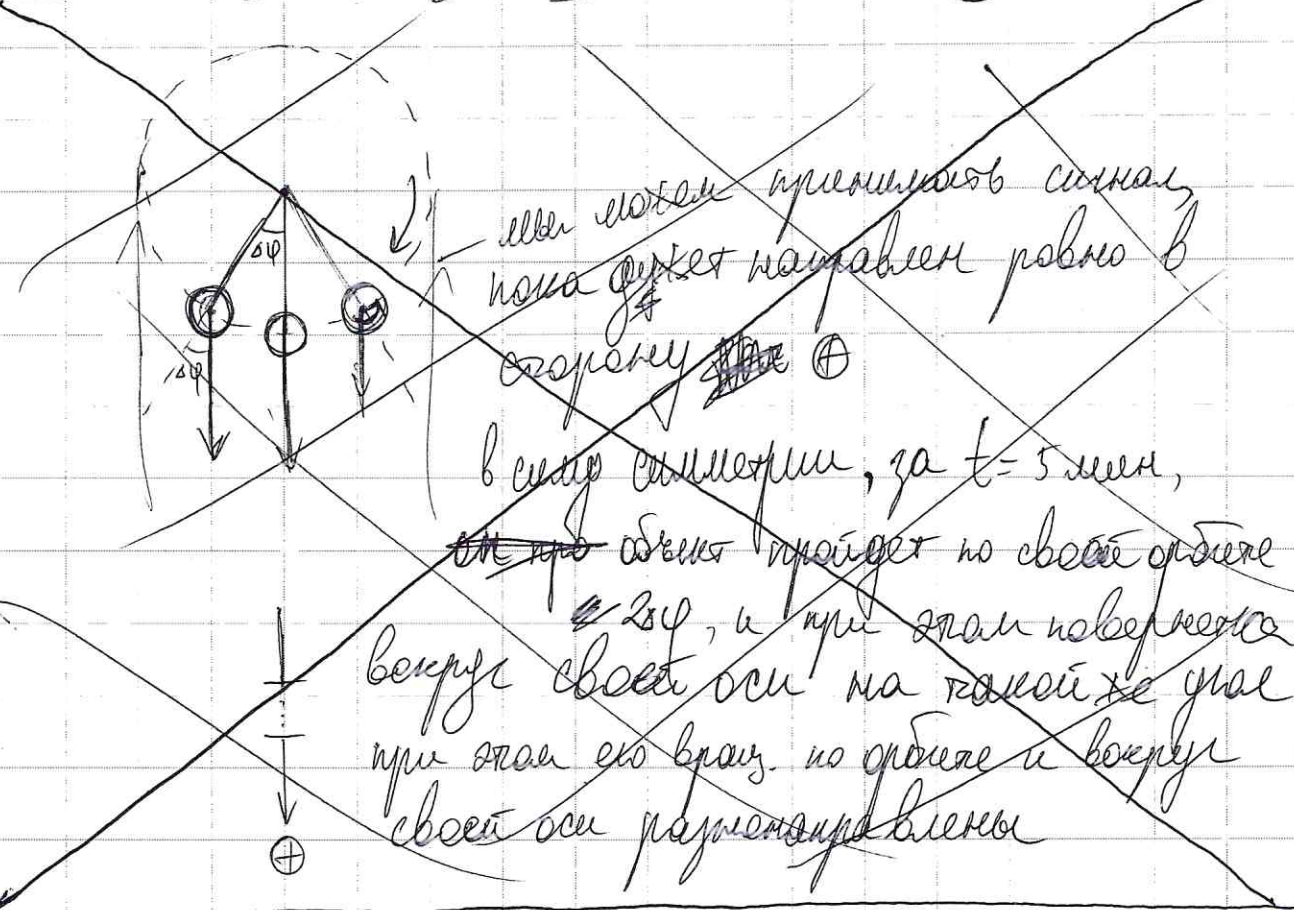 Δφ
Δφ
мы можем принимать сигнал,
пока джет направлен ровно в
сторону ⊕
в силу симметрии, за t = 5 мин,
объект пройдет по своей орбите
2Δφ, и при этом повернется
вокруг своей оси на такой же угол
при этом его вращ. по орбите и вокруг
своей оси разнонаправлены